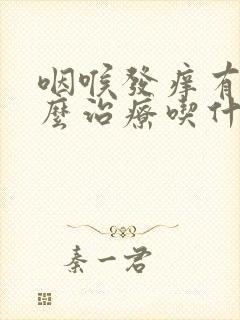 咽喉發癢有
麼治療喫什
秦一君